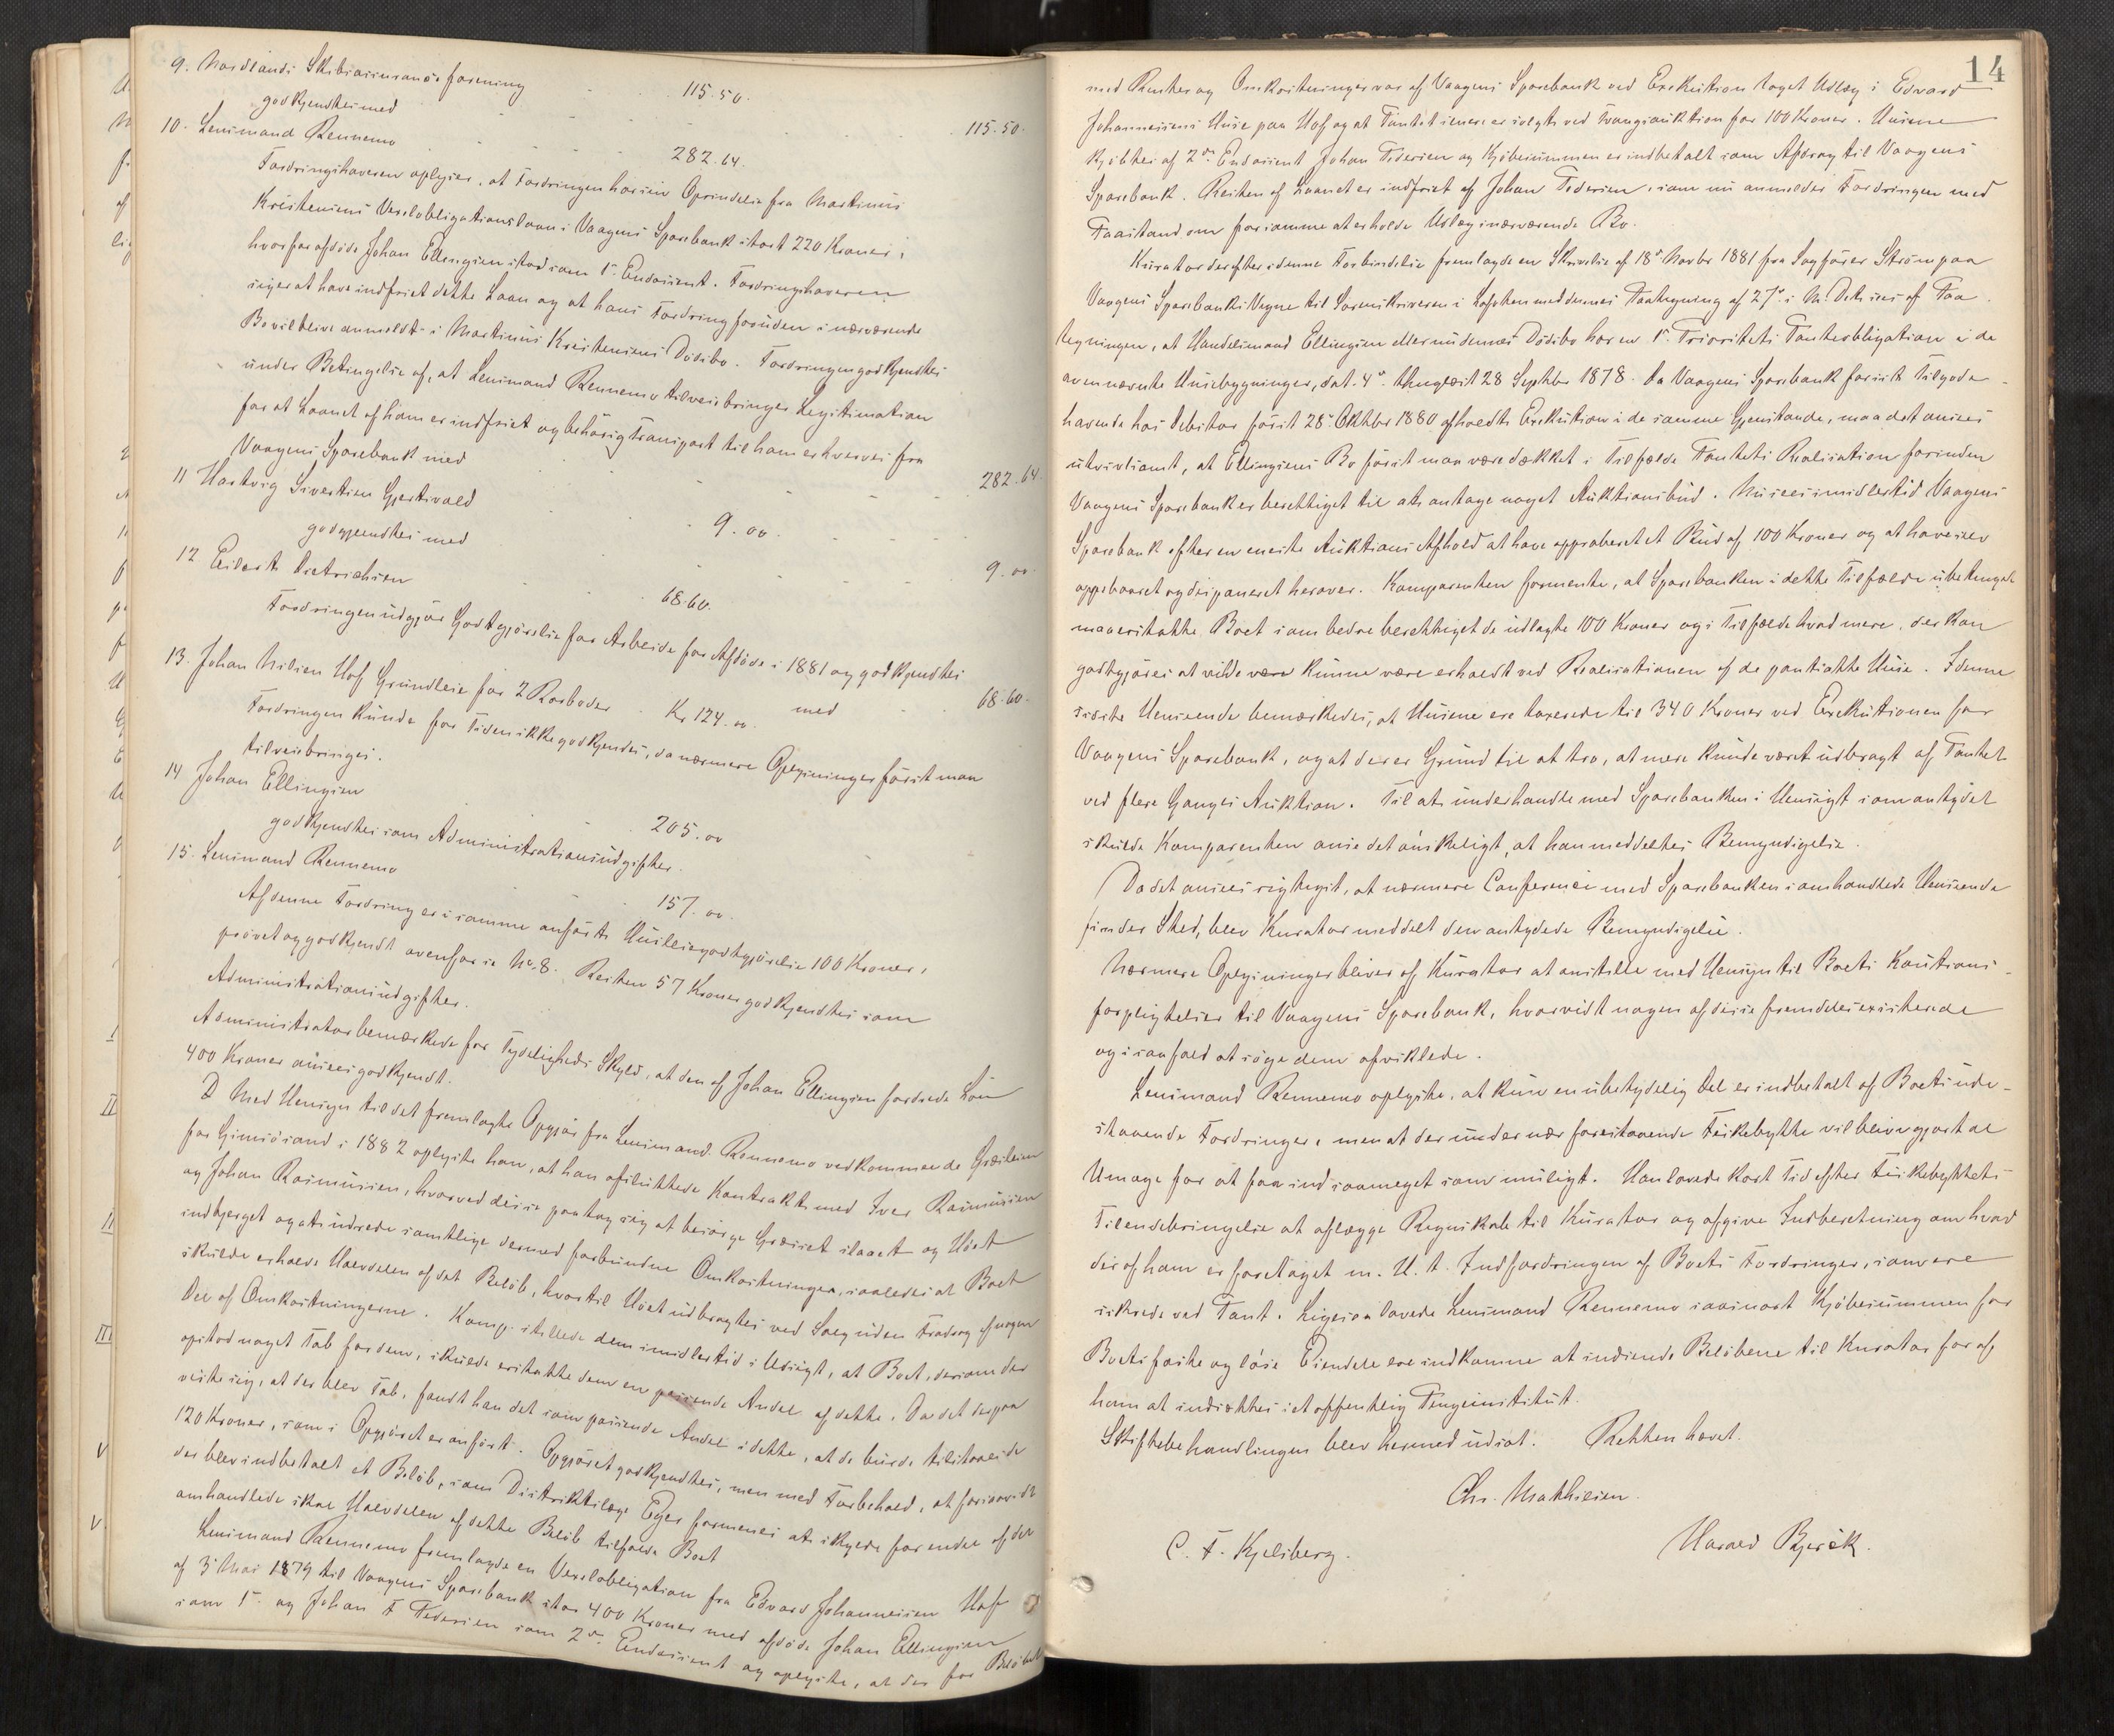 9. Nordlands Skibsassurance forening 115.50.
godkjendtes med 115.50.
10. Lensmand Rennemo 282.64.
Fordringshaveren oplyser, at Fordringen har sin Oprindelse fra Martinus
Kristensens Vexelobligationslaan i Vaagens Sparebank stort 220 Kroner,
hvorfor afdøde Johan Ellingsen stod som 1ste Endossent. Fordringshaveren
siger at have indfriet dette Laan og at hans Fordring foruden i nærværende
Bo vil blive anmeldt i Martinus Kristensens Dødsbo. Fordringen godkjendtes
under Betingelse af, at Lensmand Rennemo tilveiebringer Legitimation
for at Laanet af ham er indfriet og behørig Transport til ham erhverves fra
Vaagens Sparebank med 282.64.
11 Hartvig Sivertsen Gjerstvold 9.00.
godgjendtes med 9.00.
12 Eilert Dietrichsen 68.60.
Fordringen udgjør Godtgjørelse for Arbeide for Afdøde i 1881 og godkjendtes
med 68.60.
13. Johan Nilsen Hof Grundleie for 2 Rorboder Kr 124.00.
Fordringen kunde for Tiden ikke godkjendes, da nærmere Oplysninger først maa
tilveiebringes.
14 Johan Ellingsen 205.00
godkjendtes som Administrationsudgifter.
15. Lensmand Rennemo 157.00.
Af denne Fordring er i samme anførte Husleiegodtgjørelse 100 Kroner,
prøvet og godkjendt ovenfor se No 8. Resten 57 Kroner godkjendtes som
Administrationsudgifter.
Administrator bemærkede for Tydeligheds Skyld, at den af Johan Ellingsen fordrede Løn
400 Kroner ansees godkjendt.
D Med Hensyn til det fremlagte Opgjør fra Lensmand Rennemo vedkommende Græsleien
for Gimsøsand i 1882 oplyste han, at han afsluttede Kontrakt med Iver Rasmussen
og Johan Rasmussen, hvorved disse paatog sig at besørge Græsset slaaet og Høet
indbjerget og at udrede samtlige dermed forbundne Omkostninger, saaledes at Boet
skulde erholde Halvdelen af det Beløb, hvortil Høet udbragtes ved Salg uden Fradrag af nogen
Del af Omkostningerne. Komp. stillede dem imidlertid i Udsigt, at Boet, dersom der
opstod noget Tab for dem, skulde erstatte dem en passende Andel af dette. Da det derpaa
viste sig, at der blev Tab, fandt han det som passende Andel i dette, at de burde tilstaaes de
120 Kroner, som i Opgjøret er anført. Opgjøret godkjendtes, men med Forbehold, at forsaavidt
der blev indbetalt et Beløb, som Distriktslæge Eger formenes at skylde for endel af det
omhandlede skal Halvdelen af dette Beløb tilfalde Boet
Lensmand Rennemo fremlagde en Vexelobligation fra Edvard Johannessen Hof
af 3 Mai 1879 til Vaagens Sparebank stor 400 Kroner med afdøde Johan Ellingsen
som 1ste og Johan F Pedersen som 2den Endossent og oplyste, at der for Beløbet
14
med Renter og Omkostninger var af Vaagens Sparebank ved Exekution taget Udlæg i Edvard
Johannessens Huse paa Hof og at Pantet senere er solgt ved Tvangsauktion for 100 Kroner. Husene
kjøbtes af 2den Endossent Johan Pedersen og Kjøbesummen er indbetalt som Afdrag til Vaagens
Sparebank. Resten af Laanet er indfriet af Johan Pedersen, som nu anmelder Fordringen med
Paastand om for samme at erholde Udlæg i nærværende Bo.
Kurator derefter i denne Forbindelse fremlagde en Skrivelse af 18de Novbr 1881 fra Sagfører Strøm paa
Vaagens Sparebanks Vegne til Sorenskriveren i Lofoten med dennes Paategning af 27de s. M. Det sees af Paa-
tegningen, at Handelsmand Ellingsen eller nu dennes Dødsbo har en 1ste Prioritets Panteobligation i de
ovennævnte Husebygninger, dat. 4de thinglæst 28 Septbr 1878. Da Vaagens Sparebank for sit Tilgode-
havende hos Debitor først 28de Oktbr 1880 afholdte Exekution i de samme Gjenstande, maa det ansees
utvivlsomt, at Ellingsens Bo først maa være dækket i Tilfælde Pantets Realisation forinden
Vaagens Sparebank er berettiget til at antage noget Auktionsbud. Nu sees imidlertid Vaagens
Sparebank efter en eneste Auktions Afhold at have approberet et Bud af 100 Kroner og at have selv
oppebaaret og disponeret herover. Komparenten formente, at Sparebanken i dette Tilfælde ubetinget
maa erstatte Boet som bedre berettiget de udlagte 100 Kroner og i Tilfælde hvad mere, der kan
godtgjøres at vilde være kunne være erholdt ved Realisationen af de pantsatte Huse. I denne
sidste Henseende bemærkedes, at Husene ere taxerede til 340 Kroner ved Exekutionen for
Vaagens Sparebank, og at der er Grund til at tro, at mere kunde været udbragt af Pantet
ved flere Ganges Auktion. Til at underhandle med Sparebanken i Hensigt som antydet
skulde Komparenten anse det ønskeligt, at han meddeltes Bemyndigelse.
Da det ansees rigtigst, at nærmere Conference med Sparebanken i omhandlede Henseende
finder Sted, blev Kurator meddelt den antydede Bemyndigelse.
Nærmere Oplysninger bliver af Kurator at anstille med Hensyn til Boets Kautions-
forpligtelser til Vaagens Sparebank, hvorvidt nogen af disse fremdeles existerede
og i saafald at søge dem afviklede.
Lensmand Rennemo oplyste, at kun en ubetydelig Del er indbetalt af Boets ude-
staaende Fordringer, men at der under nær forestaaende Fiskebytte vil blive gjort al
Umage for at faa ind saameget som muligt. Han lovede kort Tid efter Fiskebyttets
Tilendebringelse at aflægge Regnskab til Kurator og afgive Indberetning om hvad
der af ham er foretaget m. H. t. Indfordringen af Boets Fordringer, som ere
sikrede ved Pant. Ligesaa lovede Lensmand Rennemo saasnart Kjøbesummen for
Boets faste og løse Eiendele ere indkomne at indsende Beløbene til Kurator for af
ham at indsættes i et offentlig Pengeinstitut.
Skiftebehandlingen blev hermed udsat. Retten hævet.
Chr. Mathisen.
C. F. Kjelsberg. Harald Bjerck.